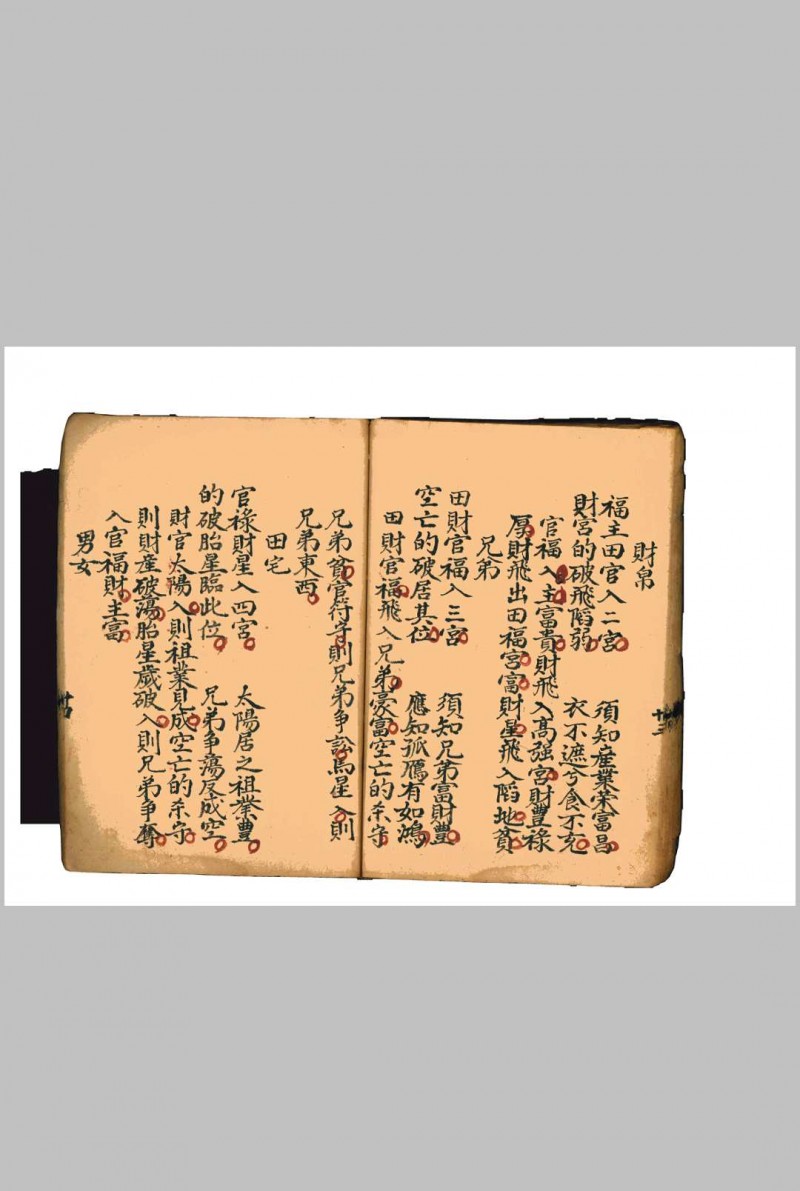 財帛
福主田官入二宮 須知產業榮富昌
財宮的破飛陷弱 衣不遮兮食不充
官福入主富貴財飛入高强宮財豐祿
厚財飛出田福宮富財星飛入陷地貧
兄弟
田財官福入三宮 須知兄弟富財豐
空亡的破居其位 應知孤鴈有如鴻
田財官福飛入兄弟豪富空亡的杀守
兄弟貧官符守則兄弟爭訟馬星入則
兄弟東西
田宅
官祿財星入四宮 太陽居之祖業豊
的破胎星臨此位 兄弟爭蕩尽成空
財官太陽入則祖業見成空亡的杀守
則財産破蕩胎星歲破入則兄弟爭奪
入官福財主富
男女
十三